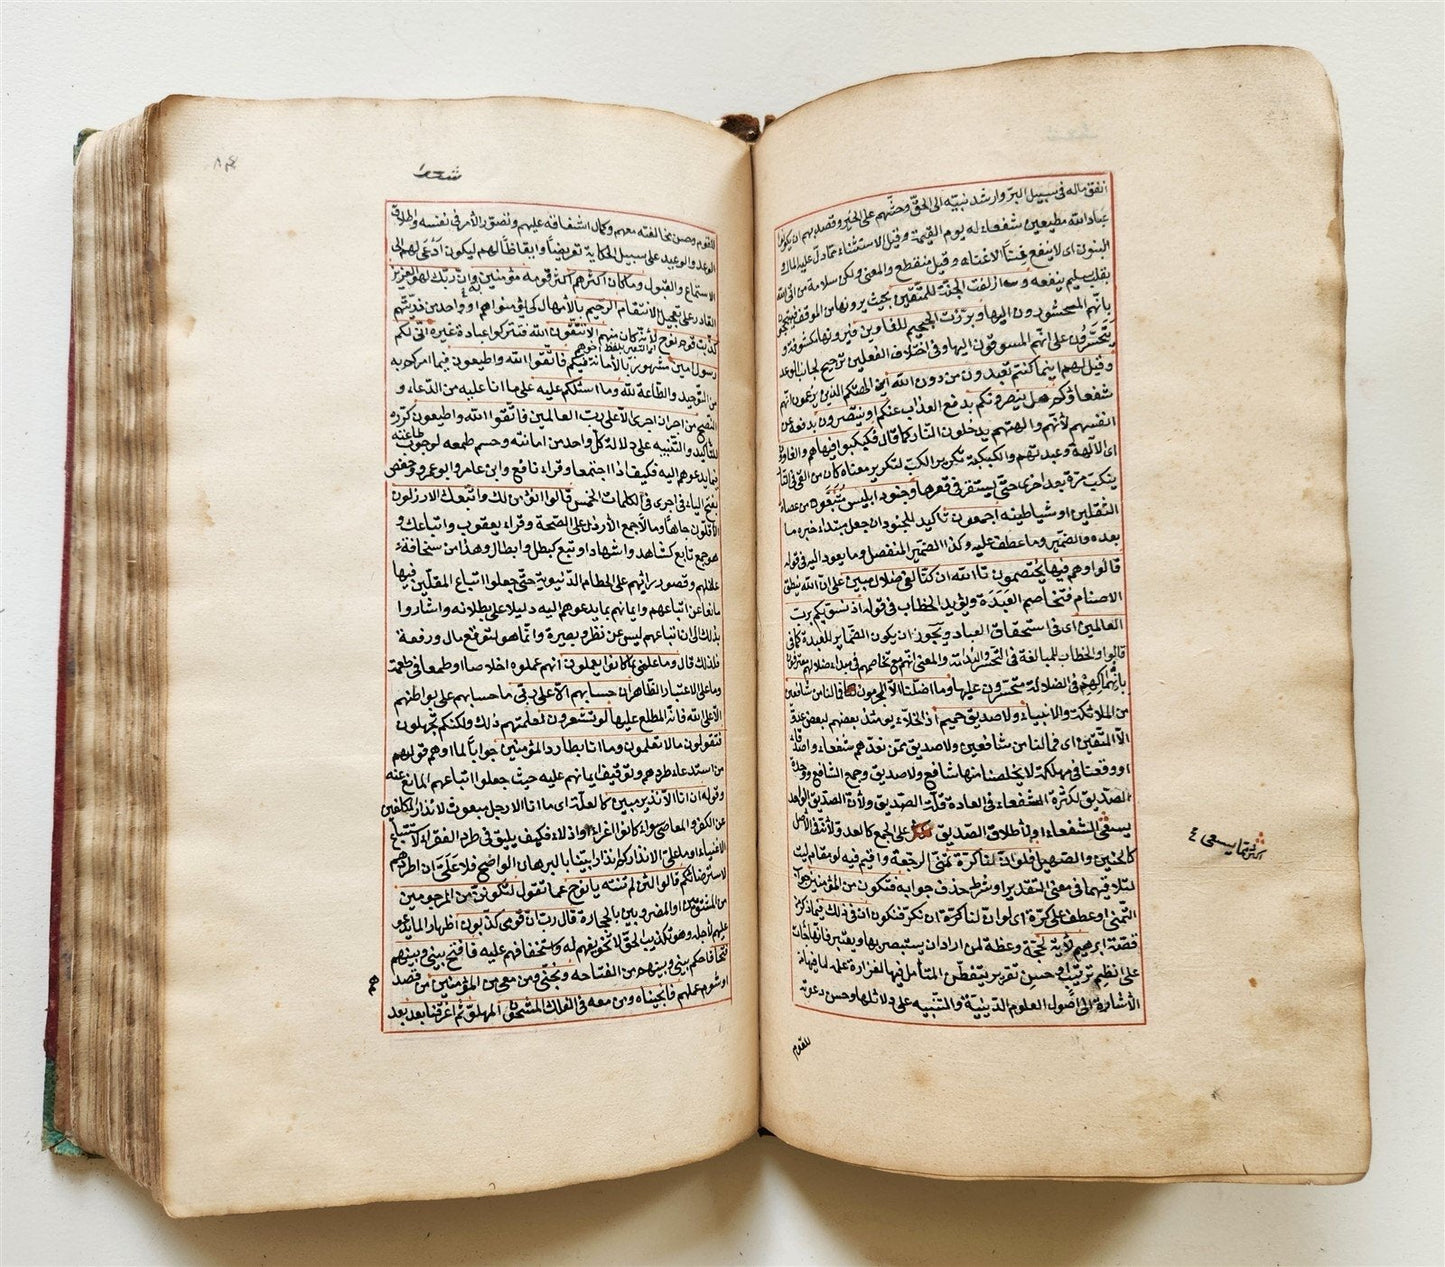 انفق ماله فى سبيل البر وارشد نبيه الى الحق وحثهم على الخير وقصد بهم ان يكونوا
عباد الله مطيعين شفعاء له يوم القيمة وقيل الاستثناء مما دل عليه المال
البنون اى لا ينفع غنى الا غناه وقيل منقطع والمعنى ولكن سلامة من اتى الله
بقلب سليم ينفعه وازلفت الجنة للمتقين بحيث يرونها من الموقف
بانهم المحشورون اليها وبرزت الجحيم للغاوين فيرونها مكشوفة و
يتحسرون على انهم المسوقون اليها وفى اختلاف الفعلين ترجيح لجانب الوعد
وقيل لهم اينما كنتم تعبدون من دون الله اين الهتكم الذين يزعمون انهم
شفعاؤكم هل ينصرونكم بدفع العذاب عنكم او ينتصرون بدفعه عن
انفسهم لانهم والهتهم يدخلون النار كما قال فكبكبوا فيها هم والغاون
اى الآلهة وعبدتهم والكبكبة تكرير الكب لتكرير معناه كان من القى فى النار
ينكب مرة بعد اخرى حتى يستقر فى قعرها وجنود ابليس متبعوه من عصاة
الثقلين او شياطينه اجمعون تاكيد للجنود ان جعل مبتداء خبره ما
بعده والضمير وما عطف عليه وكذا الضمير المنفصل وما يعود اليه فى قوله
قالوا وهم فيها يختصمون تالله ان كنا لفى ضلال مبين على ان الله ينطق
الاصنام فتخاصم العبدة ويؤيد الخطاب فى قوله اذ نسويكم برب
العالمين اى فى استحقاق العباد ويجوز ان يكون الضماير للعبدة كما فى
قالوا والخطاب للمبالغة فى التحسر والندامة والمعنى انهم مع تخاصمهم فى مبداء ضلالهم معترفون
بانهماكهم فى الضلالة متحسرون عليها وما اضلنا الا المجرمون فما لنا من شافعين
من الملائكة والانبياء ولا صديق حميم اذ الاخلاء يومئذ بعضهم لبعض عدو
الا المتقين اى فما لنا من شافعين ولا صديق ممن نعدهم شفعاء واصدقاء
او وقعنا فى مهلكة لا يخلصنا منها شافع ولا صديق وجمع الشافع ووحدة
الصديق لكثرة الشفعاء فى العادة وقلة الصديق ولان الصديق الواحد
يسعى الشفعاء او لاطلاق الصديق على الجمع كالعدو لانه فى الاصل
كالحنين والصهيل فلو ان لنا كرة تمنى الرجعة واقيم فيه لو مقام ليت
لتلاقيهما فى معنى التقدير او شرط حذف جوابه فنكون من المؤمنين جواب
التمنى او عطف على كرة اى لو ان لنا كرة ان نكر فنكون ان فى ذلك فيما ذكر من
قصة ابرهيم لاية لحجة وعظة لمن اراد ان يستبصر بها ويعتبر فانها جاءت
على انظم ترتيب وحسن تقرير يتفطن المتأمل فيها لغزارة علمه لما فيها من
الاشارة الى اصول العلوم الدينية والتنبيه على دلائلها وحسن دعوته
للقوم
شعرا
للقوم وحسن مخالفته معهم وكمال اشفاقه عليهم وتصور الامر فى نفسه واطلاق
الوعد والوعيد على سبيل الحكاية تعريضا وايقاظا لهم ليكون ادعى لهم الى
الاستماع والقبول وما كان اكثرهم اكثر قومه مؤمنين به وان ربك لهو العزيز
القادر على تعجيل الانتقام الرحيم بالامهال كى يؤمنوا هم او واحد من ذريتهم
كذبت قوم نوح الا تتقون الله فتتركوا عبادة غيره انى لكم
رسول امين مشهور بالامانة فيكم فاتقوا الله واطيعون فيما امركم به
من التوحيد والطاعة لله وما اسئلكم عليه على ما انا عليه من الدعاء و
النصح من اجر ان اجرى الا على رب العالمين فاتقوا الله واطيعون كرره
للتاكيد والتنبيه على دلالة كل واحد من امانته وحسم طمعه لوجوب طاعته
فيما يدعوهم اليه فكيف اذا اجتمعا وقراء نافع وابن عامر وابو عمرو وحفص
بفتح الياء فى اجرى فى الكلمات الخمس قالوا انؤمن لك واتبعك الارذلون
الاقلون جاها وما لا جمع الارذل على الصحة وقراء يعقوب واتباعك و
هو جمع تابع كشاهد واشهاد او تبع كبطل وابطال وهذا من سخافة
عقلهم وقصور رائهم على الحطام الدنيوية حتى جعلوا اتباع المقلين فيها
مانعا عن اتباعهم وايمانهم بما يدعوهم اليه دليلا على بطلانه واشاروا
بذلك الى ان اتباعهم ليس عن نظر وبصيرة وانما هو لتوقع مال ورفعة
فلذلك قال وما علمى بما كانوا يعملون انهم عملوه اخلاصا او طمعا فى طعمة
وما على الا اعتبار الظاهر ان حسابهم الا على ربى ما حسابهم على بواطنهم
الا على الله فانه المطلع عليها لو تشعرون لعلمتم ذلك ولكنكم تجهلون
فتقولون ما لا تعلمون وما انا بطارد المؤمنين جوابا لما اوهم قولهم
من استدعاء طردهم وتوقيف ايمانهم عليه حيث جعلوا اتباعهم المانع عنه
وقوله ان انا الا نذير مبين كالعلة اى ما انا الا رجل مبعوث لانذار المكلفين
عن الكفر والمعاصى سواء كانوا اعزاء او اذلاء فكيف يليق فى طرد الفقراء لاستتباع
الاغنياء او ما على الا انذاركم انذارا بينا بالبرهان الواضح فلا على ان اطردهم
لاسترضائكم قالوا لئن لم تنته يا نوح عما تقول لتكونن من المرجومين
من المشتومين او المضروبين بالحجارة قال رب ان قومى كذبون اظهارا لما يدعو
عليهم لاجله وهو تكذيب الحق لا تخويفهم له واستخفافهم عليه فافتح بينى وبينهم
فتحا فاحكم بينى وبينهم من الفتاحه ونجنى ومن معى من المؤمنين من قصد
او شوم عملهم فانجيناه ومن معه فى الفلك المشحون المملو ثم اغرقنا بعد بعد